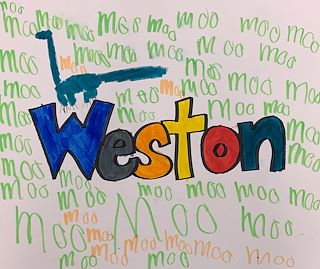 moo moo moo moo moo
moo moo moo moo moo moo
moo moo moo moo moo
moo moo moo moo
moo moo moo moo moo
Weston
moo moo
moo moo
moo moo
moo moo moo moo moo
moo moo moo moo
moo moo moo moo moo moo
moo moo